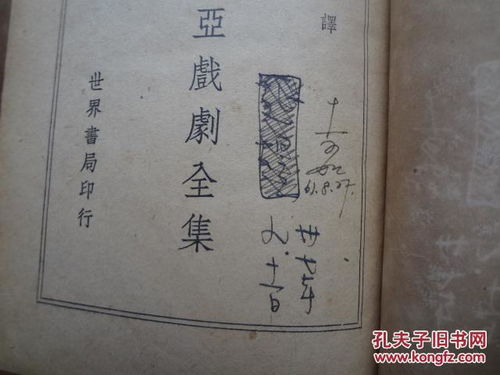 譯
亞戲劇全集
世界書局印行
61.8.27.
卅七年
九.十一日
孔夫子旧书网
www.kongfz.com